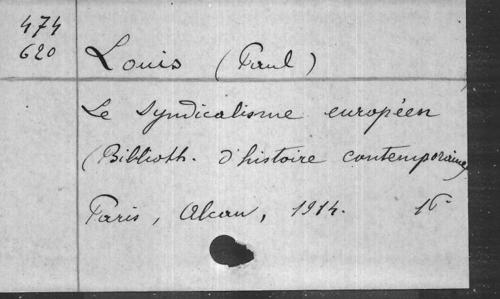 474
620
Louis (Paul)
Le Syndicalisme européen
(Biblioth. d'histoire contemporaine)
Paris, Alcan, 1914. 16°